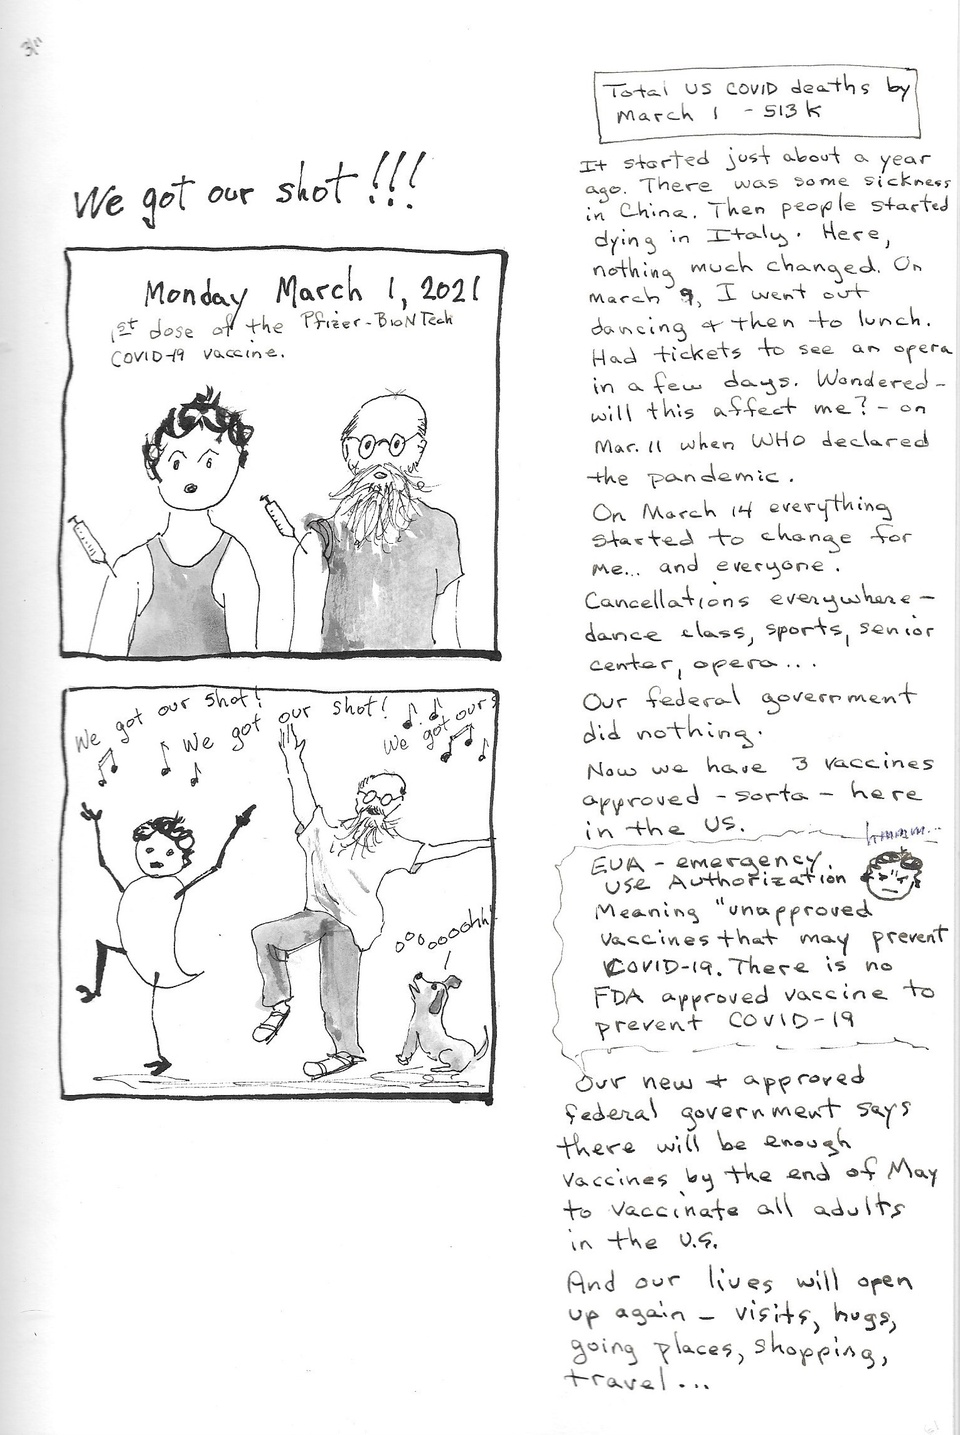 3/1
We got our shot!!!
Monday March 1, 2021
1st dose of the Pfizer-BioNTech
COVID-19 vaccine.
We got our shot!
We got our shot!
We got ours
oooooooohh!
Total US COVID deaths by
March 1 - 513K
It started just about a year
ago. There was some sickness
in China. Then people started
dying in Italy. Here,
nothing much changed. On
March 9, I went out
dancing & then to lunch.
Had tickets to see an opera
in a few days. Wondered-
will this affect me? - on
Mar. 11 when WHO declared
the pandemic.
On March 14 everything
started to change for
me... and everyone.
Cancellations everywhere-
dance class, sports, senior
center, opera...
Our federal government
did nothing.
Now we have 3 vaccines
approved - sorta - here
in the US.
hmmm...
EUA - emergency
Use Authorization
Meaning "unapproved
vaccines that may prevent
COVID-19. There is no
FDA approved vaccine to
prevent COVID-19
Our new & approved
federal government says
there will be enough
vaccines by the end of May
to vaccinate all adults
in the U.S.
And our lives will open
up again - visits, hugs,
going places, shopping,
travel...